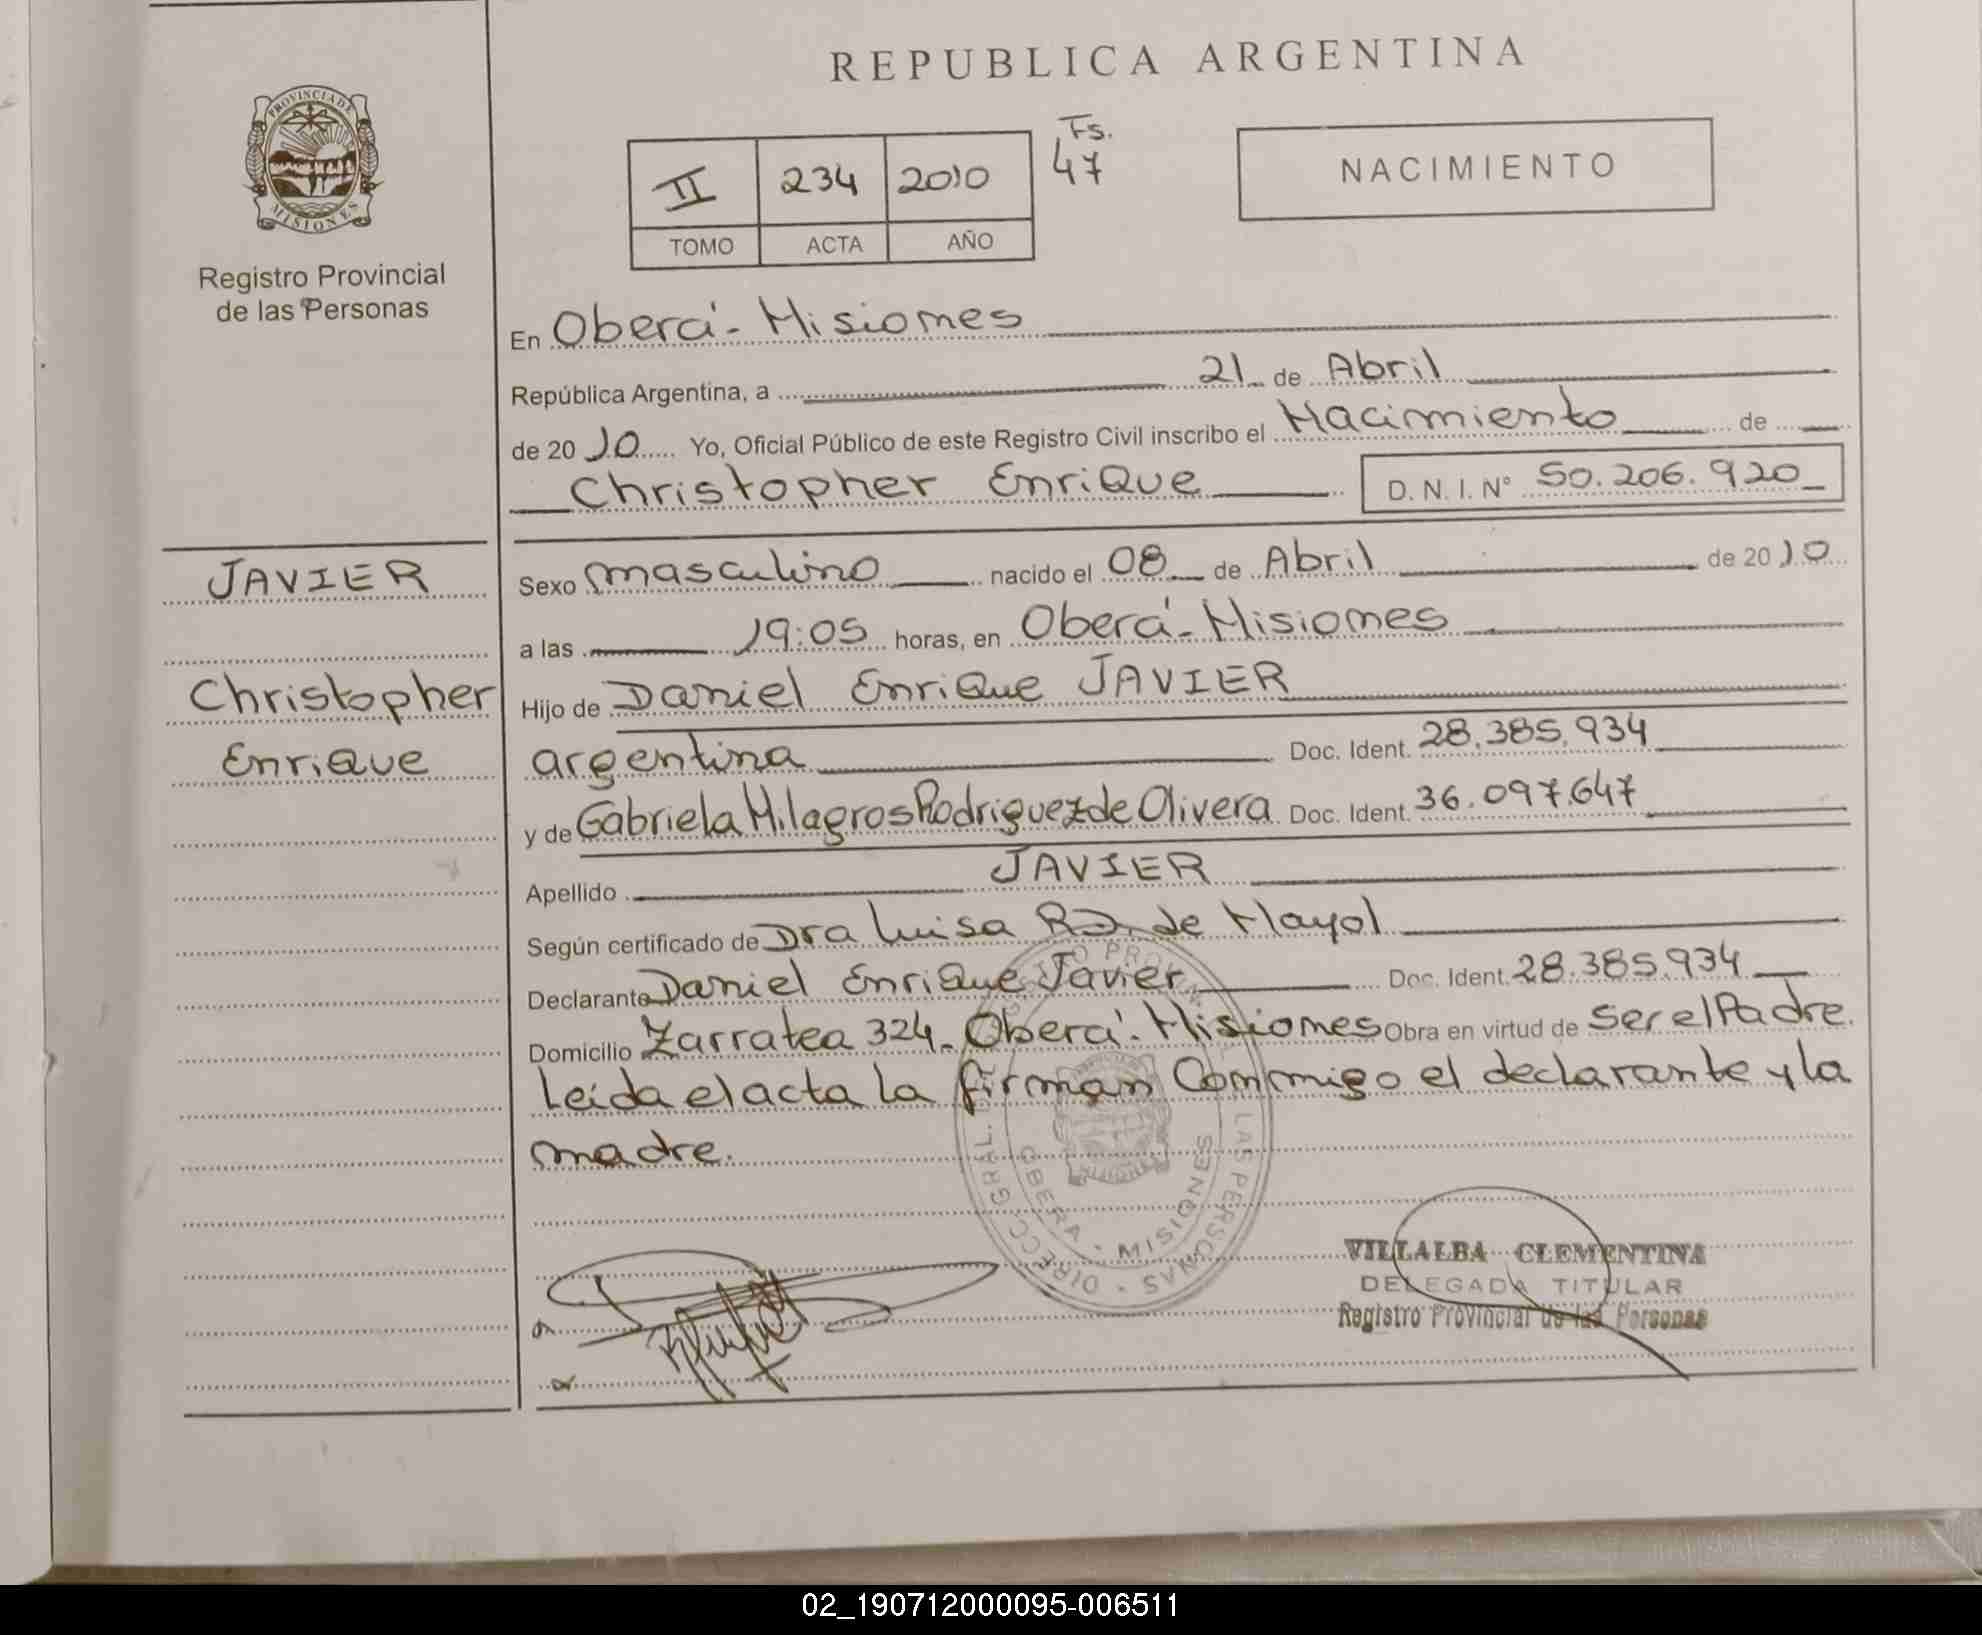 REPUBLICA ARGENTINA
PROVINCIA DE
MISIONES
Registro Provincial
de las Personas
II 234 2010
TOMO ACTA AÑO
Fs.
47
NACIMIENTO
En Oberá - Misiones
República Argentina, a 21 de Abril
de 2010 Yo, Oficial Público de este Registro Civil inscribo el Nacimiento de
Christopher Enrique D. N. I. N° 50.206.920
JAVIER
Christopher
Enrique
Sexo masculino nacido el 08 de Abril de 2010
a las 19:05 horas, en Oberá - Misiones
Hijo de Daniel Enrique JAVIER
argentina Doc. Ident. 28.385.934
y de Gabriela Milagros Rodriguez de Olivera Doc. Ident. 36.097.647
Apellido JAVIER
Según certificado de Dra Luisa R. de Mayol
Declarante Daniel Enrique Javier Doc. Ident. 28.385.934
Domicilio Zarratea 324 - Oberá - Misiones Obra en virtud de ser el Padre.
Leída el acta la firman Conmigo el declarante y la
madre.
OBERA - MISIONES
VILLALBA CLEMENTINA
DELEGADA TITULAR
Registro Provincial de las Personas
02_190712000095-006511